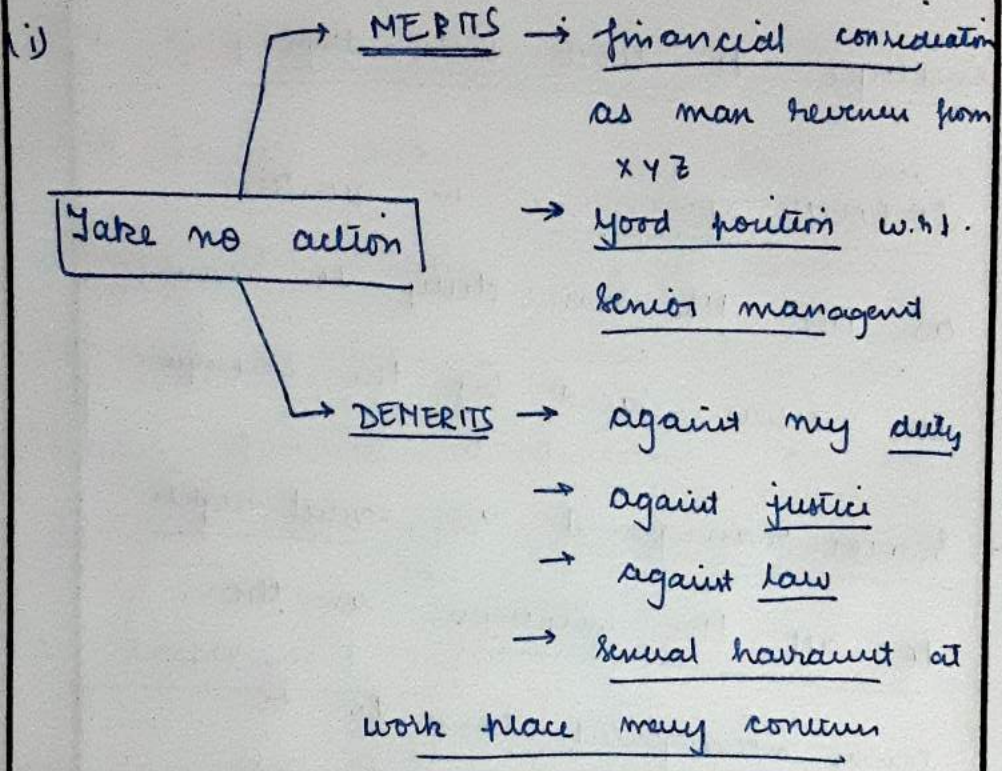 (i)
MERITS → financial consideration
as max revenue from
XYZ
→ good position w.r.t.
senior managemt
Take no action
DEMERITS → against my duty
→ against justice
→ against law
→ sexual harassmt at
work place may continue